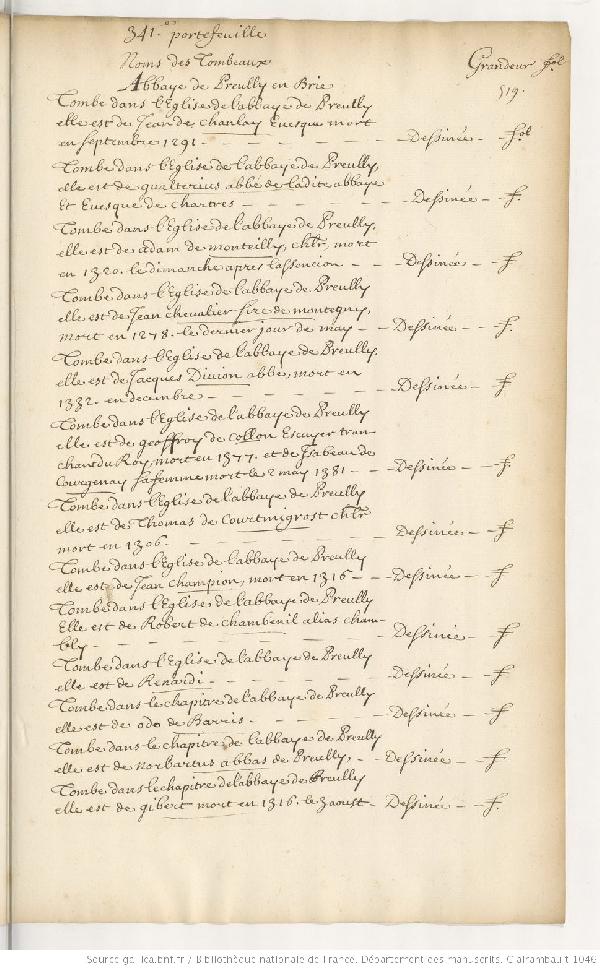 341.e portefeuille
Noms des Tombeaux
Grandeur fol.
Abbaye de Preully en Brie
519.
Tombe dans l'Eglise de labbaye de Preully
elle est de Jean de chanlay Evesque mort
en septembre 1291. Dessinée fol
Tombe dans l'Eglise de l'abbaye de Preully,
elle est de gualterius abbé de ladite abbaye
Et Evesque de chartres Dessinée f.
Tombe dans l'Eglise de l'abbaye de Preully,
elle est de adam de monteilly, chlr, mort
en 1320. le dimanche apres lassencion. Dessinée f
Tombe dans l'Eglise de l'abbaye de Preully
elle est de Jean chevalier sire de montegny,
mort en 1278. le dernier jour de may Dessinée f.
Tombe dans l'Eglise de l'abbaye de Preully,
elle est de Jacques Divion abbé, mort en
1332. en decembre Dessinée f
Tombe dans l'Eglise de l'abbaye de Preully
elle est de geoffroy de Collon Escuyer tran-
chant du Roy, mort en 1377. et de Isabeau de
Courgenay sa femme mort le 2 may 1381 Dessinée f.
Tombe dans l'Eglise de l'abbaye de Preully
elle est de Thomas de Courtmigrost chlr
mort en 1306. Dessinée f
Tombe dans l'Eglise de l'abbaye de Preully
elle est de Jean Champion, mort en 1316 Dessinée f
Tombe dans l'Eglise de l'abbaye de Preully
Elle est de Robert de chambenil alias cham-
bly Dessinée f
Tombe dans l'Eglise de l'abbaye de Preully
elle est de Renardi Dessinée f
Tombe dans le chapitre de l'abbaye de Preully
elle est de odo de Barris. Dessinée f
Tombe dans le chapitre de l'abbaye de Preully
elle est de Norbartus abbas de Preully, Dessinée f
Tombe dans le chapitre de l'abbaye de Preully
elle est de gibert mort en 1316. le 3 aoust Dessinée f.
Source gallica.bnf.fr / Bibliothèque nationale de France. Département des manuscrits. Clairambault 1046